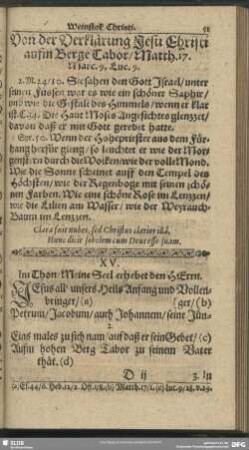 Weinstock Christi. 51
Von der Verklärung Jesu Christi
aufm Berge Tabor/Matth.17.
Marc. 9. Luc. 9.
2. M. 24/10. Sie sahen den Gott Israel/unter
seinen Füssen war es wie ein schöner Saphir/
und wie die Gestalt des Himmels/wenn er klar
ist. C.34. Die Haut Moses Angesichtes glenzzet/
davon daß er mit Gott geredet hatte.
Sir. 50. Wenn der Hohepriester aus dem Für-
hang herfür gieng/ so leuchtet er wie der Mor-
genstern durch die Wolken/wie der volle Mond.
Wie die Sonne scheinet auff den Tempel des
Höchsten/wie der Regenboge mit seinen schö-
nen Farben. Wie eine schöne Rose im Lenzzen/
wie die Lilien am Wasser/ wie der Weyrauch-
Baum im Lenzzen.
Clara fuit nubes, sed Christus clarior illâ,
Hunc dicit sobolem cum Deus esse suam.
XV.
Im Thon: Meine Seel erhebet den HErrn.
JEsus all' unsers Heils Anfang und Vollen-
bringer/(a) (ger/(b)
Petrum/Jacobum/ auch Johannem/seine Jün-
2.
Eins males zu sich nam/auf daß er sein Gebet/(c)
Aufm hohen Berg Tabor zu seinem Vater
thät.(d)
D ij 3. In